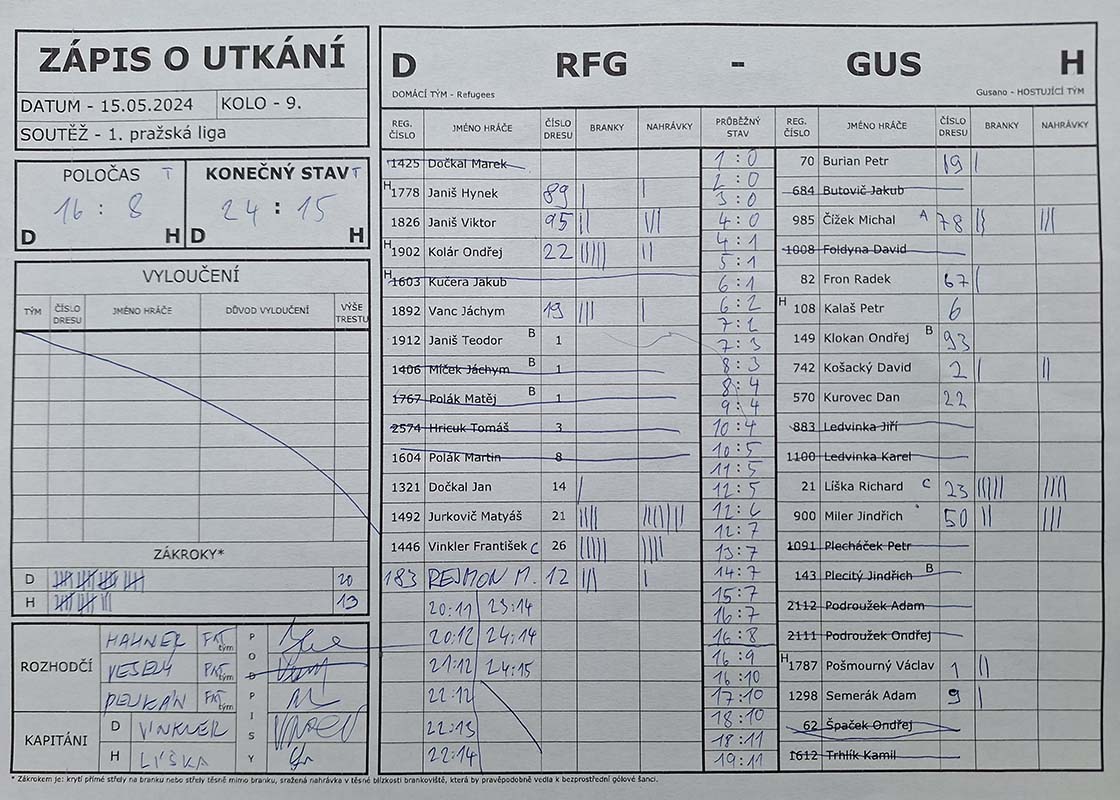 ZÁPIS O UTKÁNÍ
DATUM - 15.05.2024 KOLO - 9.
SOUTĚŽ - 1. pražská liga
POLOČAS T KONEČNÝ STAV T
16 : 8 24 : 15
D H D H
VYLOUČENÍ
TÝM ČÍSLO DRESU JMÉNO HRÁČE DŮVOD VYLOUČENÍ VÝŠE TRESTU
ZÁKROKY*
D 20
H 13
ROZHODČÍ
HAHNER FAT tým
VESELÝ FAT tým
PELIKÁN FAT tým
PODPISY
KAPITÁNI
D VINKLER
H LÍŠKA
D RFG - GUS H
DOMÁCÍ TÝM - Refugees Gusano - HOSTUJÍCÍ TÝM
REG. ČÍSLO JMÉNO HRÁČE ČÍSLO DRESU BRANKY NAHRÁVKY PRŮBĚŽNÝ STAV REG. ČÍSLO JMÉNO HRÁČE ČÍSLO DRESU BRANKY NAHRÁVKY
1425 Dočkal Marek
H 1778 Janiš Hynek 89 | |
1826 Janiš Viktor 95 || |||
H 1902 Kolár Ondřej 22 ||||| ||
H 1603 Kučera Jakub
1892 Vanc Jáchym 19 |||
1912 Janiš Teodor B 1
1406 Míček Jáchym B 1
1767 Polák Matěj B 1
2574 Hricuk Tomáš 3
1604 Polák Martin 8
1321 Dočkal Jan 14 |
1492 Jurkovič Matyáš 21
1446 Vinkler František C 26
183 REJMON M. 12 ||| |
20:11 23:14
20:12 24:14
21:12 24:15
22:12
22:13
22:14
1:0
2:0
3:0
4:0
4:1
5:1
6:1
6:2
7:2
7:3
8:3
8:4
9:4
10:4
10:5
11:5
12:5
12:6
12:7
13:7
14:7
15:7
16:7
16:8
16:9
16:10
17:10
18:10
18:11
19:11
70 Burian Petr 19 |
684 Butovič Jakub
985 Čížek Michal A 78 || |||
1008 Foldyna David
82 Fron Radek 67 |
H 108 Kalaš Petr 6
149 Klokan Ondřej B 93
742 Košacký David 2 | ||
570 Kurovec Dan 22
883 Ledvinka Jiří
1100 Ledvinka Karel
21 Líška Richard C 23 ||||| ||||
900 Miler Jindřich 50 || |||
1091 Plecháček Petr
143 Plecitý Jindřich B
2112 Podroužek Adam
2111 Podroužek Ondřej
H 1787 Pošmourný Václav 1 ||
1298 Semerák Adam 9 |
62 Špaček Ondřej
1612 Trhlík Kamil
* Zákrokem je: krytí přímé střely na branku nebo střely těsně mimo branku, sražená nahrávka v těsné blízkosti brankoviště, která by pravěpodobně vedla k bezprostřední gólové šanci.